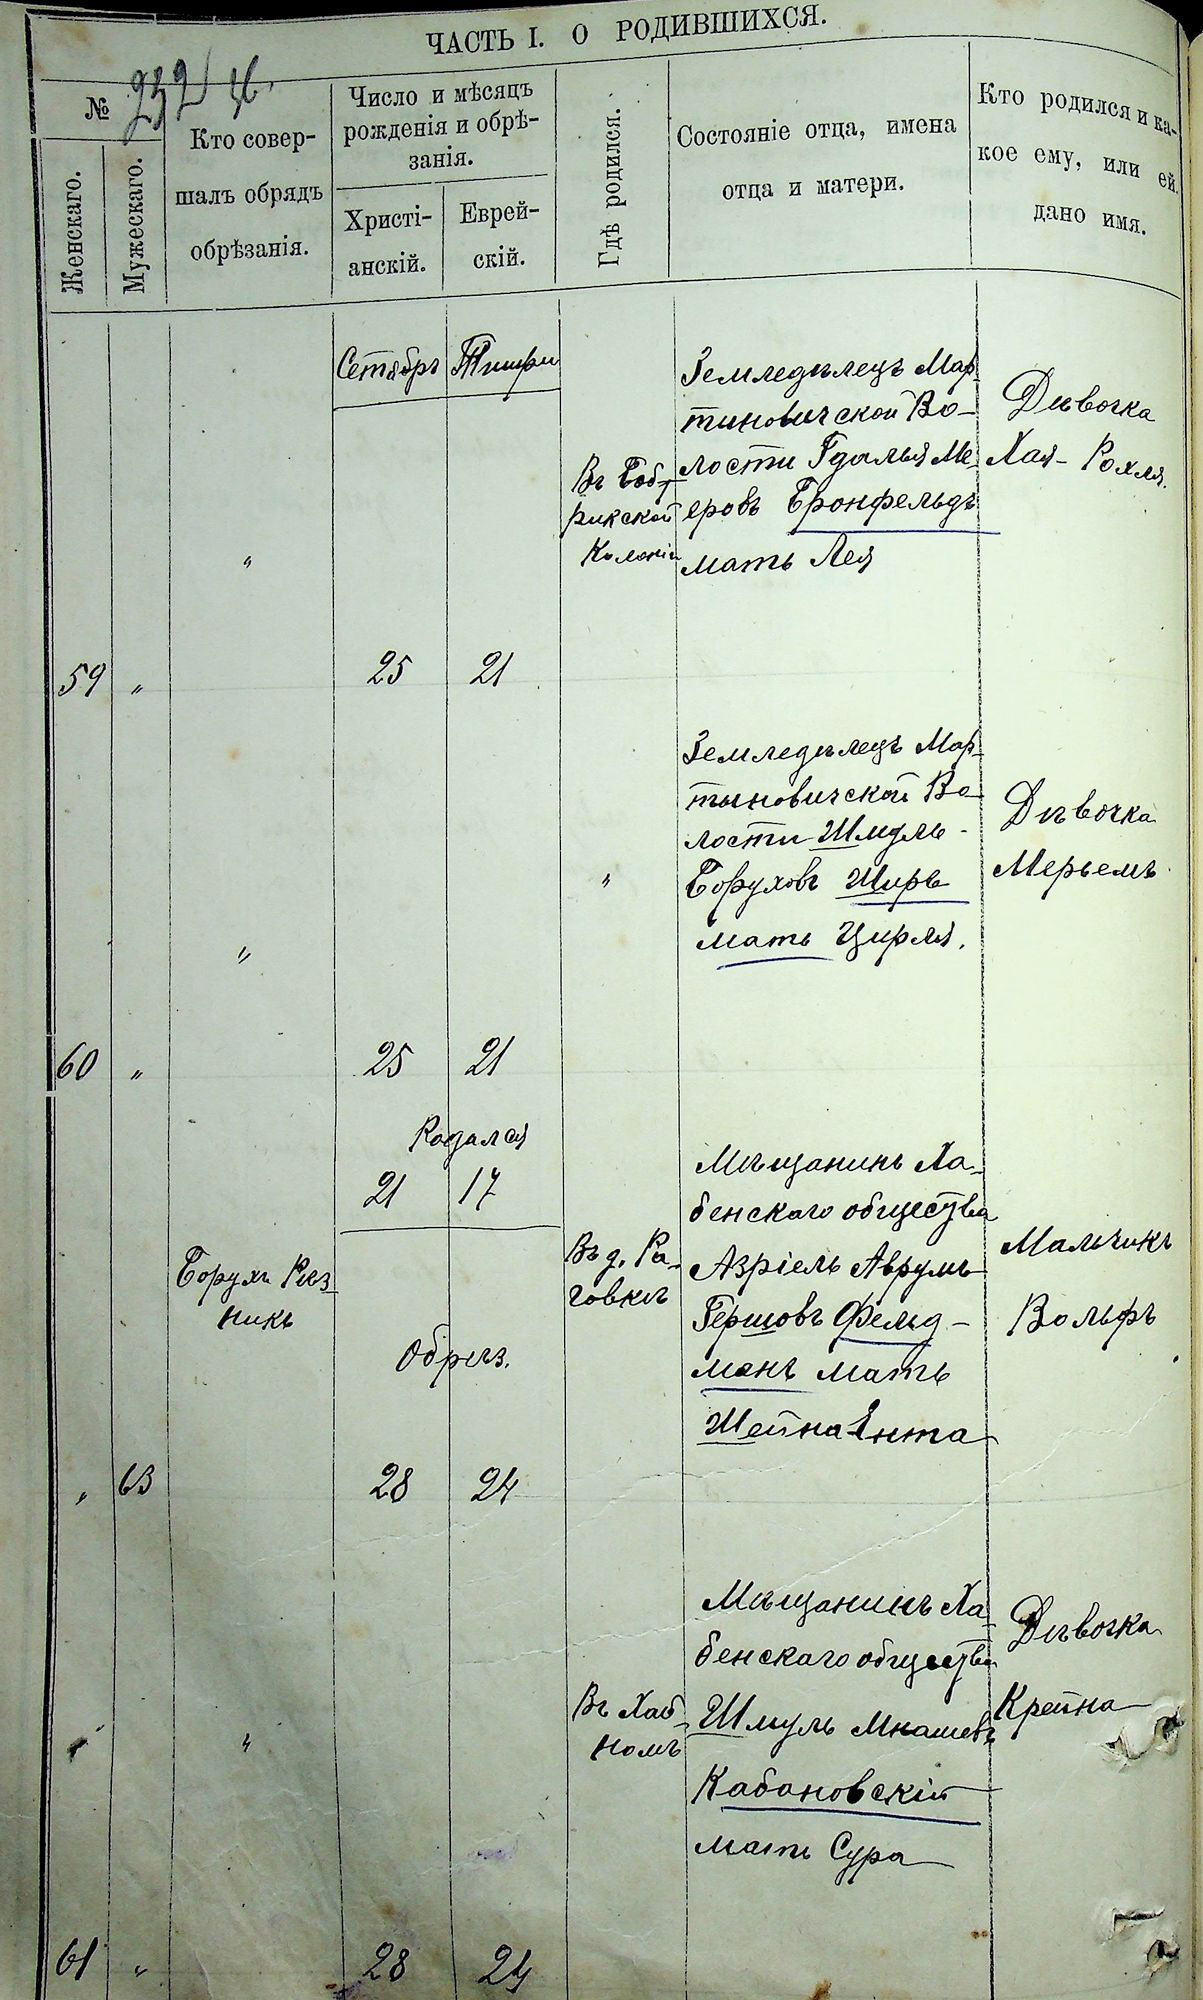 ЧАСТЬ I. О РОДИВШИХСЯ.
№
232
Женскаго.
Мужескаго.
Кто совер-
шалъ обрядъ
обрѣзанія.
Число и мѣсяцъ
рожденія и обрѣ-
занія.
Христі-
анскій.
Еврей-
скій.
Гдѣ родился.
Состояніе отца, имена
отца и матери.
Кто родился и ка-
кое ему, или ей
дано имя.
Сетябръ Тишри
59 „
„
25 21
Въ
рикской
Колоніи
Земледѣлецъ Мар-
тиновичской Во-
лости Гдалья Ме-
еровъ Бронфельдъ
мать Лея
Дѣвочка
Хая- Рохля.
60 „
„
25 21
„
Земледѣлецъ Мар-
тыновичской Во-
лости Шмуль-
Боруховъ Ширъ
мать Цирля.
Дѣвочка
Мерьемъ
„ 63
Борухъ Рѣз-
никъ
Родался
21 17
Обрѣз.
28 24
Въ д. Ра-
говкѣ
Мѣщанинъ Ха-
бенскаго общества
Азріель Аврумъ
Гершовъ Фельд-
манъ мать
Шейна Ента
Мальчикъ
Вольфъ
61 „
„
28 24
Въ Хаб-
номъ
Мѣщанинъ Ха-
бенскаго общества
Шмуль
Кабановскій
мать Сура
Дѣвочка
Крейна